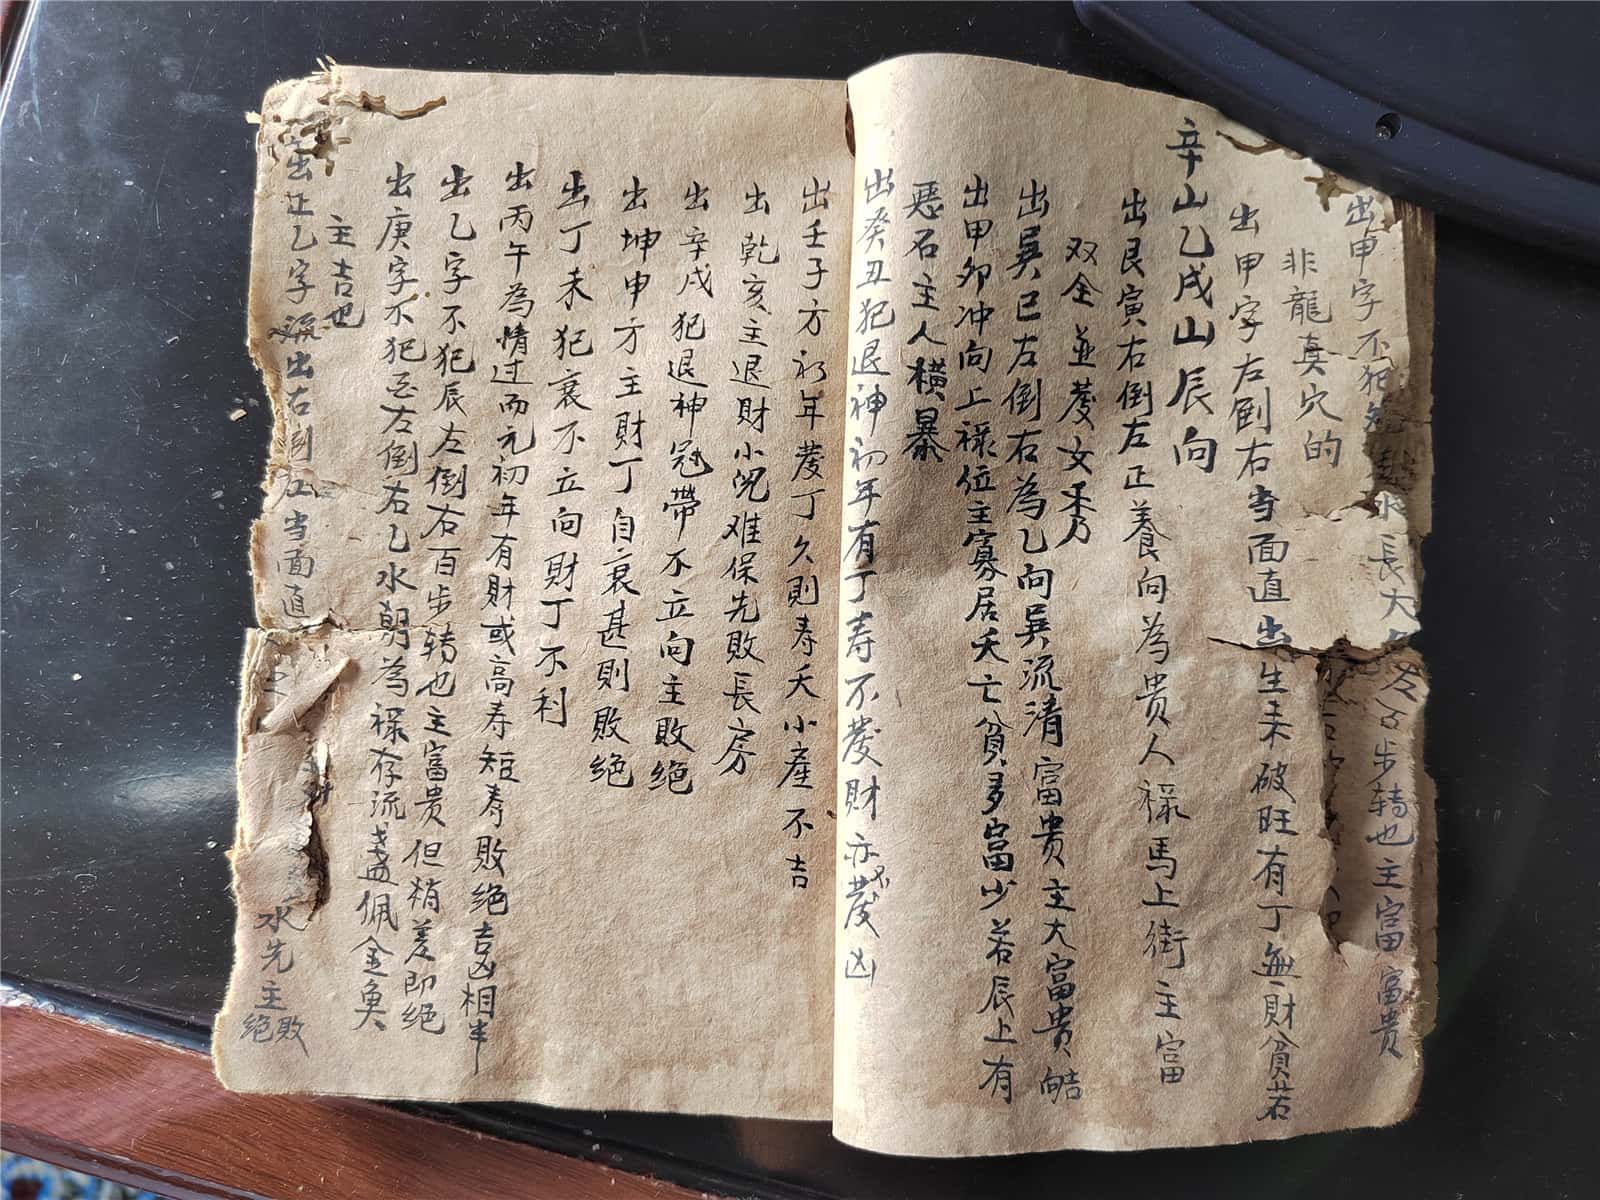 出甲字不犯水長大百步转也主富富贵
非龍真穴的
出甲字左倒右当面直出生未破旺有丁無財貧若
辛山乙戌山辰向
出艮寅右倒左正養向為贵人禄馬上街主富
双全並發女秀
出巽巳左倒右為乙向巽流清富贵主大富贵
出甲卯冲向上禄位主寡居夭亡貧多富少若辰上有
惡石主人橫暴
出癸丑犯退神初年有丁寿不發財亦不發凶
出壬子方初年發丁久則寿夭小產不吉
出乾亥主退財小児难保先敗長房
出辛戌犯退神冠帶不立向主敗绝
出坤申方主財丁自衰甚則敗绝
出丁未犯衰不立向財丁不利
出丙午為情过而亢初年有財或高寿短寿敗绝吉凶相半
出乙字不犯辰左倒右百步转也主富贵但稍差即绝
出庚字不犯酉左倒右乙水朝為禄存流盡佩金魚
主吉也
乙字出右倒左当面直水先主敗绝